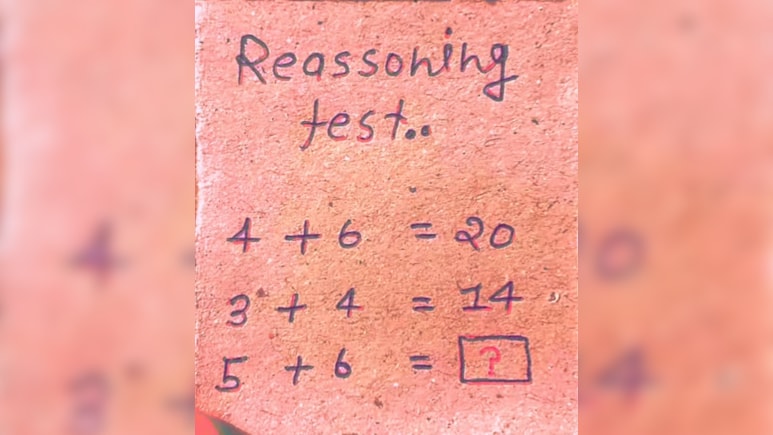 Reassoning
test..
4 + 6 = 20
3 + 4 = 14
5 + 6 = ?